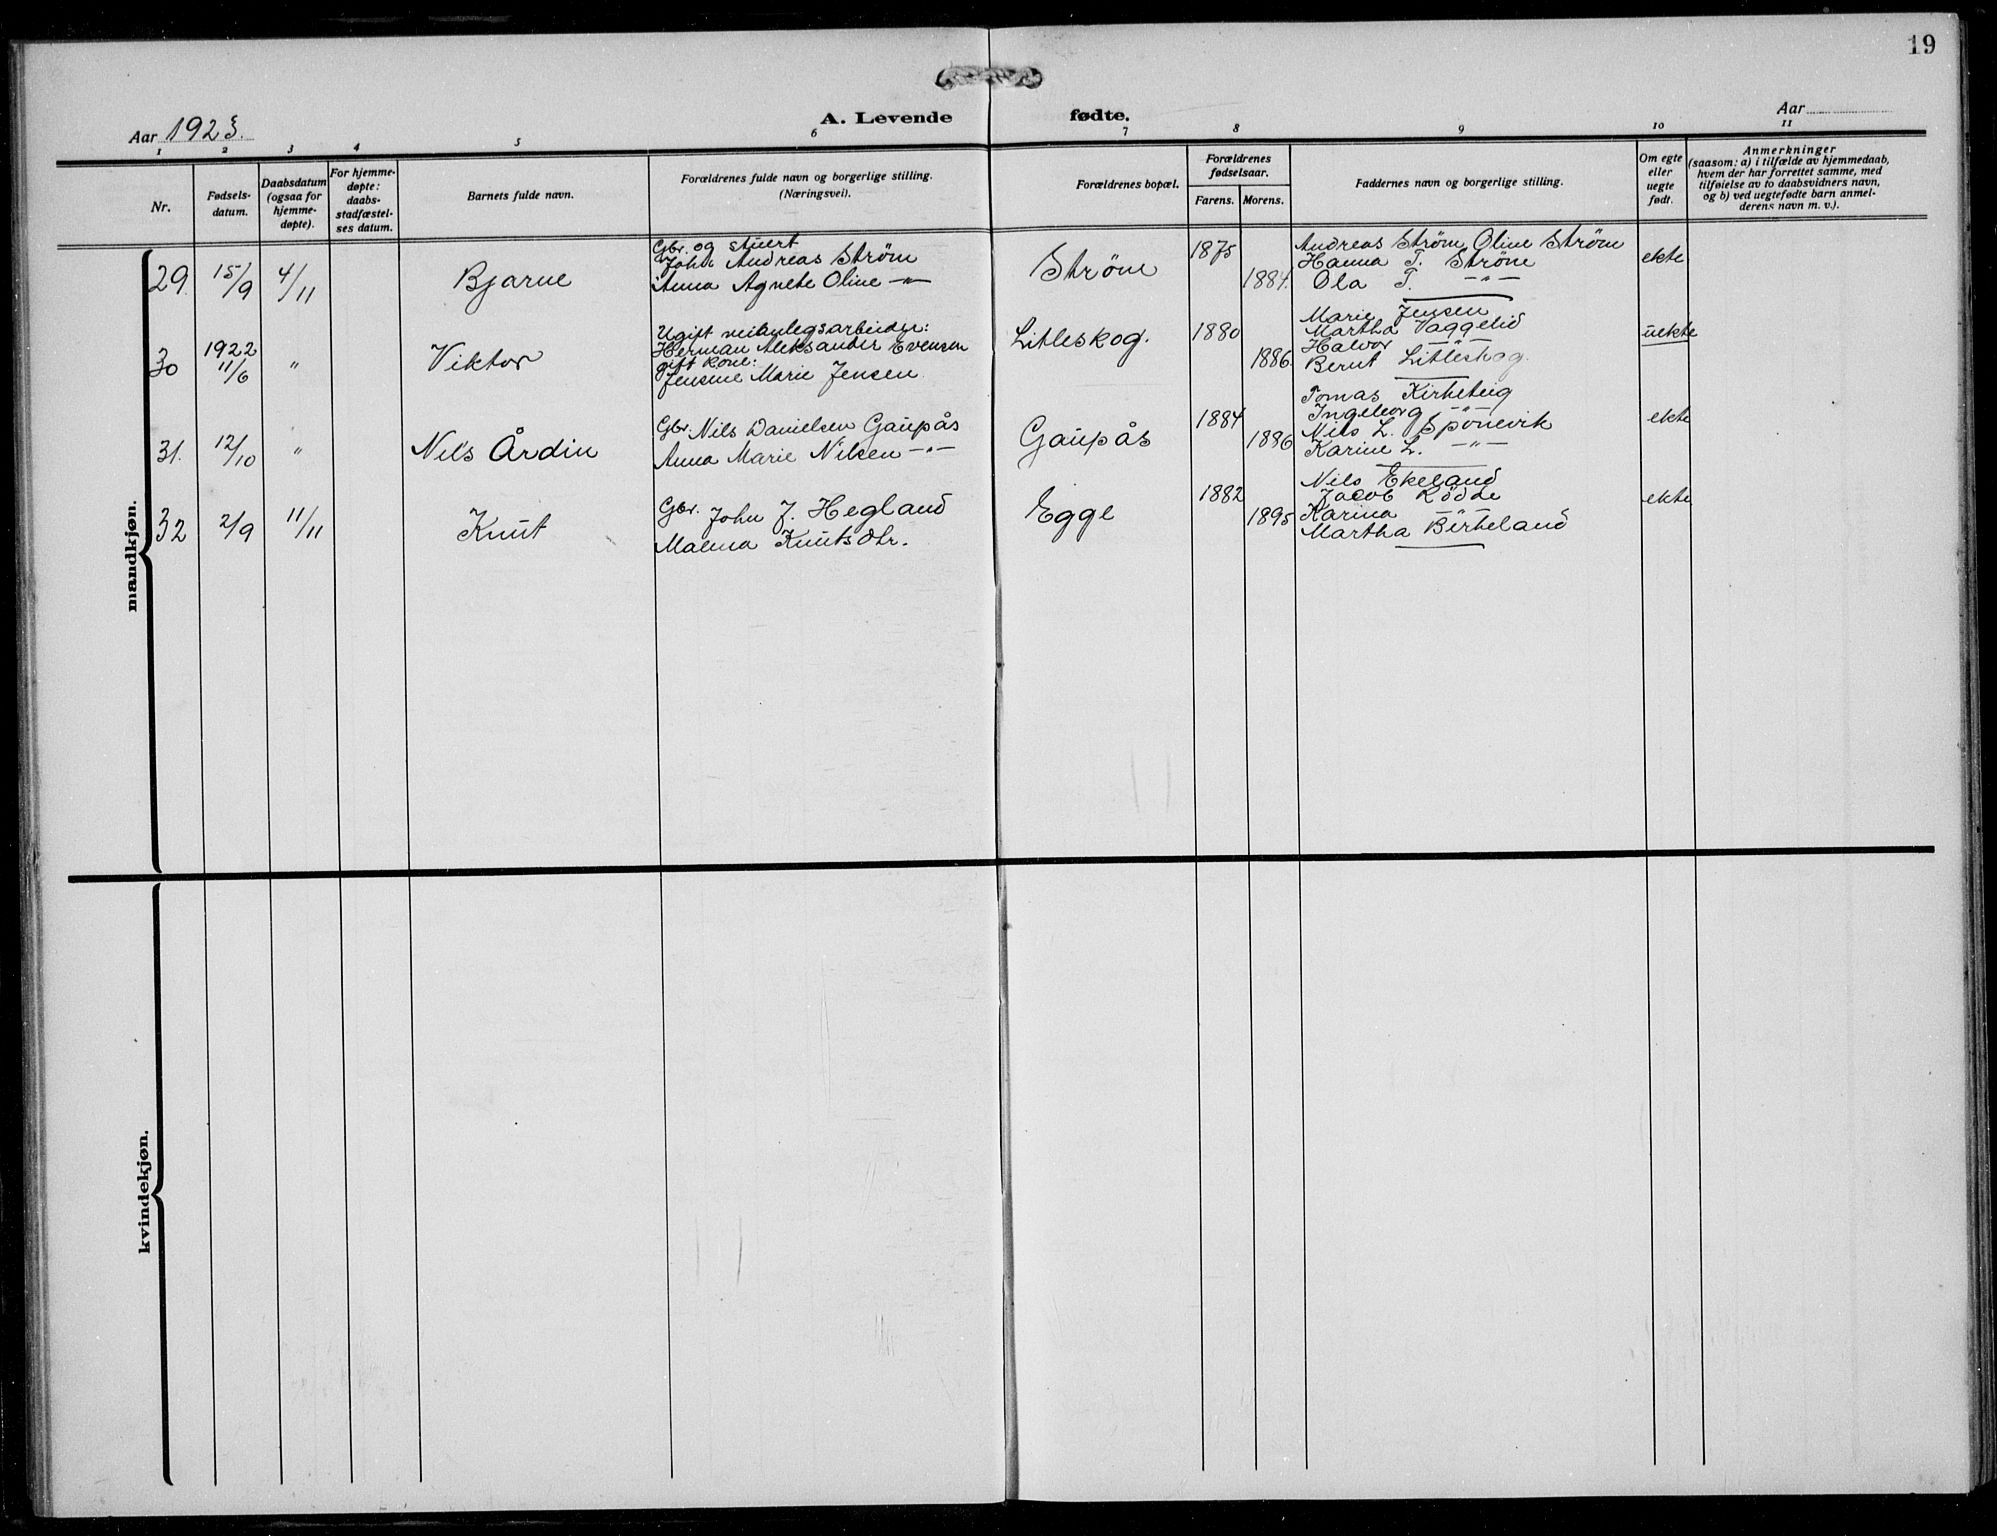 19
Aar 1923.
A. Levende fødte.
Aar
1 2 3 4 5 6 7 8 9 10 11
Nr.
Fødsels-
datum.
Daabsdatum
(ogsaa for
hjemme-
døpte).
For hjemme-
døpte:
daabs-
stadfæstel-
ses datum.
Barnets fulde navn.
Forældrenes fulde navn og borgerlige stilling.
(Næringsvei).
Forældrenes bopæl.
Forældrenes
fødselsaar.
Farens. Morens.
Faddernes navn og borgerlige stilling.
Om egte
eller
uegte
født.
Anmerkninger
(saasom: a) i tilfælde av hjemmedaab,
hvem der har forrettet samme, med
tilføielse av to daabsvidners navn,
og b) ved uegtefødte barn anmel-
derens navn m. v.).
mandkjøn.
29. 15/9 4/11 Bjarne
Gbr. og stuert
John Andreas Strøm
Anna Agnete Oline -"-
Strøm
1875
1884.
Andreas Strøm, Oline Strøm
Hanna T. Strøm
Ola T. -"-
ekte
30 1922
11/6 " Viktor
Ugift veianlegsarbeider:
Herman Aleksander Evensen
gift kone:
Jensine Marie Jensen
Litleskog.
1880
1886.
Marie Jensen
Martha Vaggelid
Halvor -"-
Bernt Litleskog.
uekte
31. 12/10 " Nils Årdin
Gbr. Nils Danielsen Gaupås
Anna Marie Nilsen -"-
Gaupås
1884
1886
Tomas Kirketeig
Ingeborg -"-
Nils L. Sponevik
Karine L. -"-
ekte
32 2/9 11/11 Knut
Gbr. John J. Hegland
Malena Knutsdtr.
Egge
1882
1895
Nils Ekeland
Jacob Rödde
Karina -"-
Martha Birkeland
ekte
kvindekjøn.